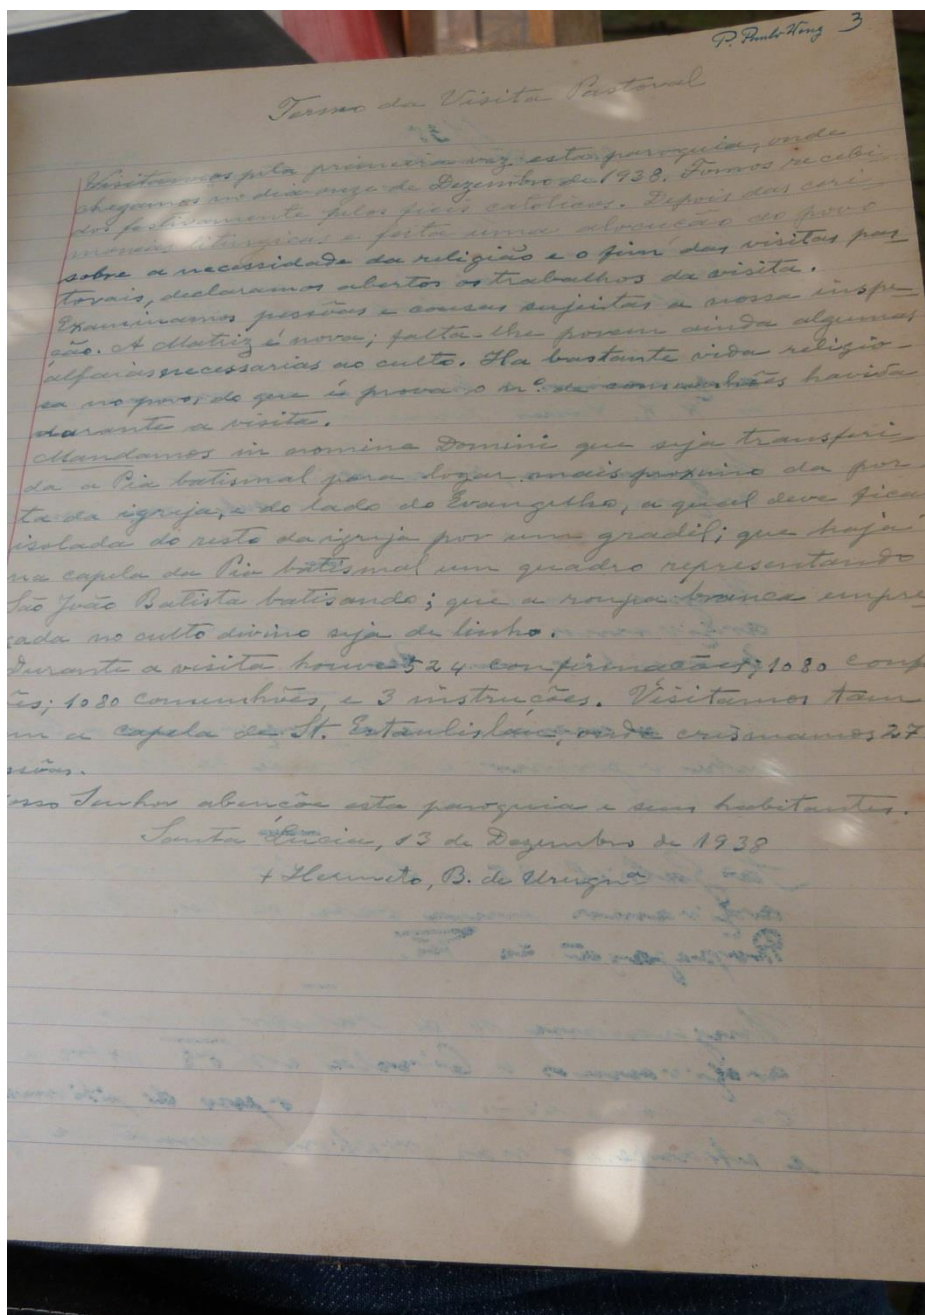 P. Paulo 3
Termo da Visita Pastoral
Visitamos pela primeira vez esta paroquia, onde
chegamos no dia onze de Dezembro de 1938. Fomos recebi-
dos festivamente pelos fieis catolicos. Depois das ceri-
monias liturgicas e feita uma alocução ao povo
sobre a necessidade da religião e o fim das visitas pas-
torais, declaramos abertos os trabalhos da visita.
Examinamos pessôas e cousas sujeitas a nossa inspe-
ção. A Matriz é nova; falta-lhe porem ainda algumas
alfaias necessarias ao culto. Ha bastante vida religio-
sa no povo, do que é prova o nº. de comunhões havida
durante a visita.
Mandamos in nomine Domini que seja transferi-
da a Pia batismal para logar mais proximo da por-
ta da igreja, e do lado do Evangelho, a qual deve fica
isolada do resto da igreja por um gradil; que haja
na capela da Pia batismal um quadro representando
São João Batista batisando; que a roupa branca empre-
gada no culto divino seja de linho.
Durante a visita houve 524 confirmações; 1080 conf
ões; 1080 comunhões, e 3 instruções. Visitamos tam
m a capela de St. Estanisláu, onde crismamos 27
ssôas.
osso Senhor abençõe esta paroquia e seus habitantes.
Santa Lucia, 13 de Dezembro de 1938
+ Hermeto, B. de Uruguª